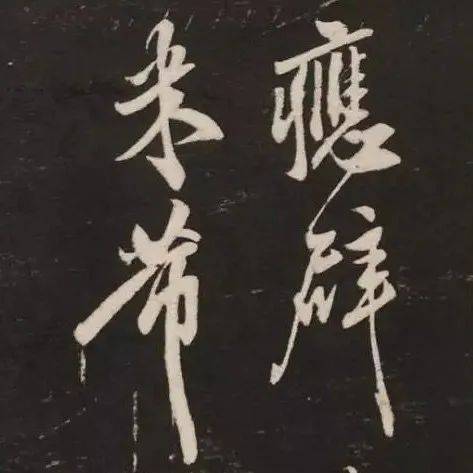 應辟
米芾